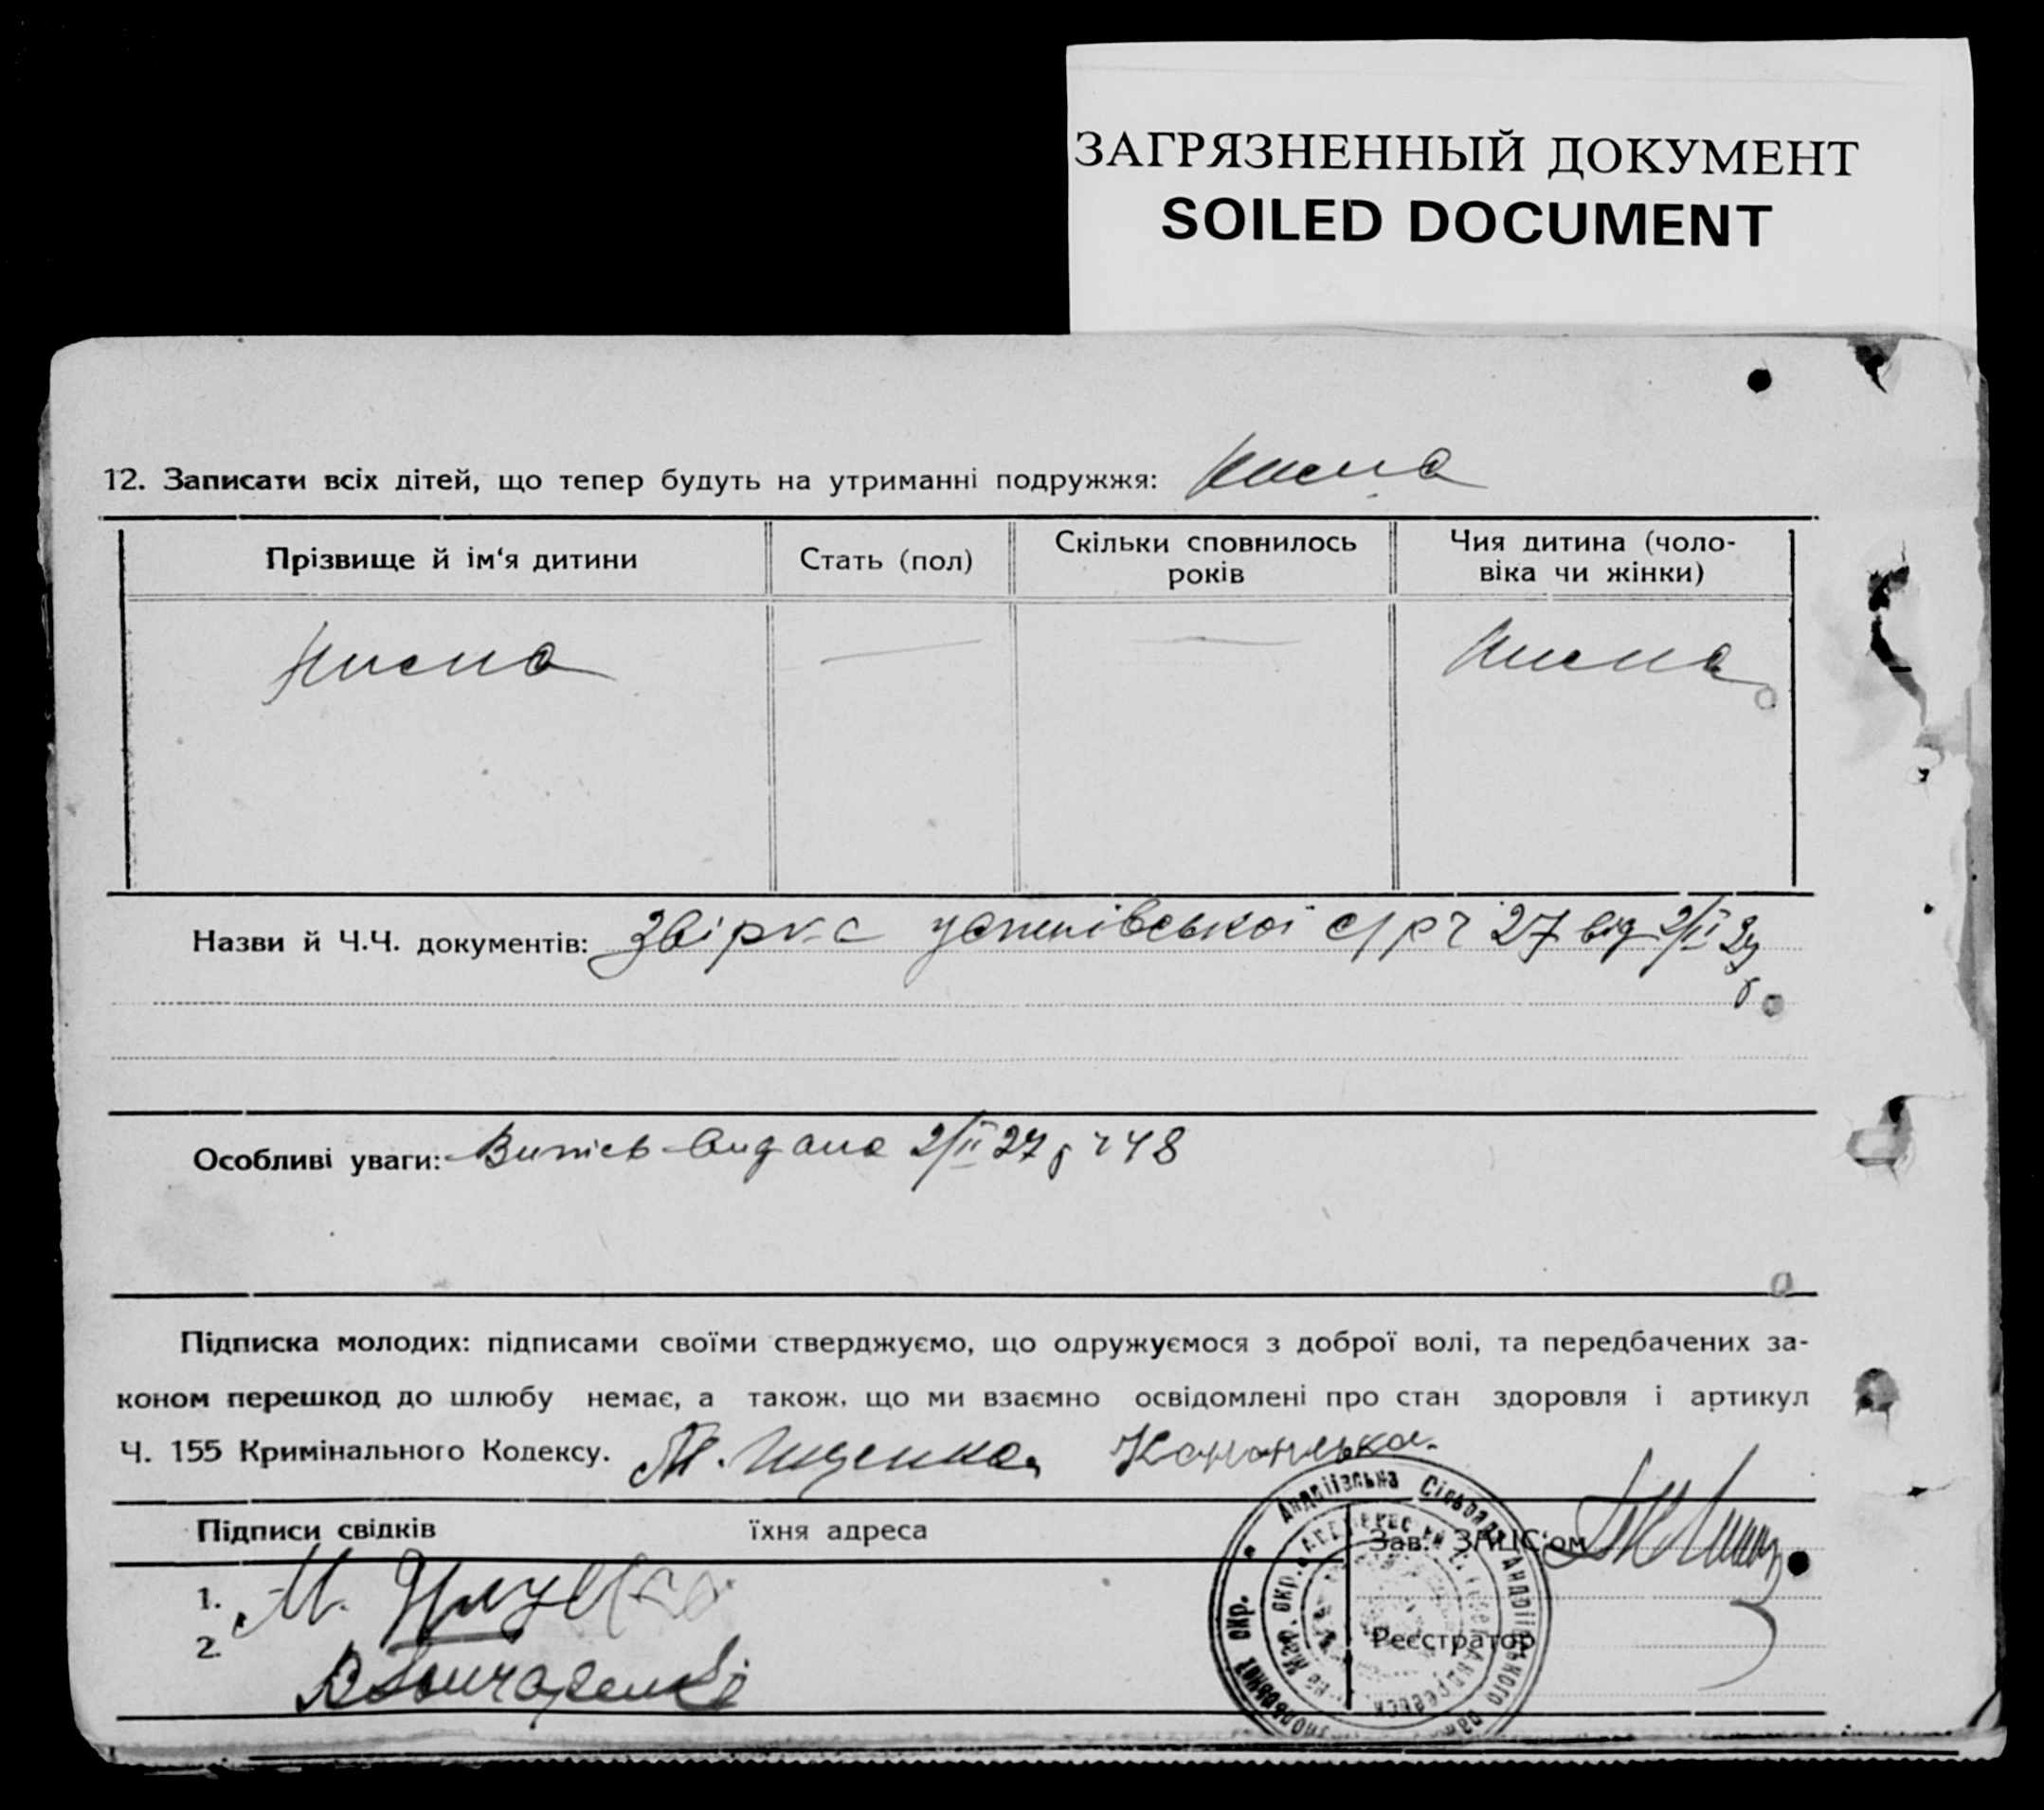 ЗАГРЯЗНЕННЫЙ ДОКУМЕНТ
SOILED DOCUMENT
12. Записати всіх дітей, що тепер будуть на утриманні подружжя: Нисма
Прізвище й ім‘я дитини Стать (пол) Скільки сповнилось років Чия дитина (чоло-віка чи жінки)
Нисма — — Нисма
Назви й Ч.Ч. документів: успенівської с/р ч 27 від 2/II 27
р
Особливі уваги: Витісь видана 2/II 27 р ч 48
Підписка молодих: підписами своїми стверджуємо, що одружуємося з доброї волі, та передбачених за-
коном перешкод до шлюбу немає, а також, що ми взаємно освідомлені про стан здоровля і артикул
Ч. 155 Кримінального Кодексу. Іщенко
Підписи свідків їхня адреса Зав. ЗАЦС‘ом
1. М.
2. Гончаренко
Реєстратор
Андріївська Сільрада Андріївського